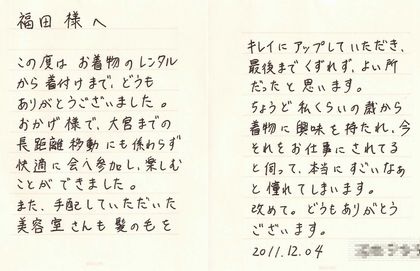 福田 様 へ
この度は お着物のレンタル
から着付けまで、どうも
ありがとうございました。
おかげ様で、大宮までの
長距離移動にも係わらず
快適に会へ参加し、楽しむ
ことができました。
また、手配していただいた
美容室さんも髪の毛を
キレイにアップしていただき、
最後までくずれず、よい所
だったと思います。
ちょうど私くらいの歳から
着物に興味を持たれ、今
それをお仕事にされてる
と伺って、本当にすごいなぁ
と憧れてしまいます。
改めて。どうもありがとう
ございます。
2011.12.04